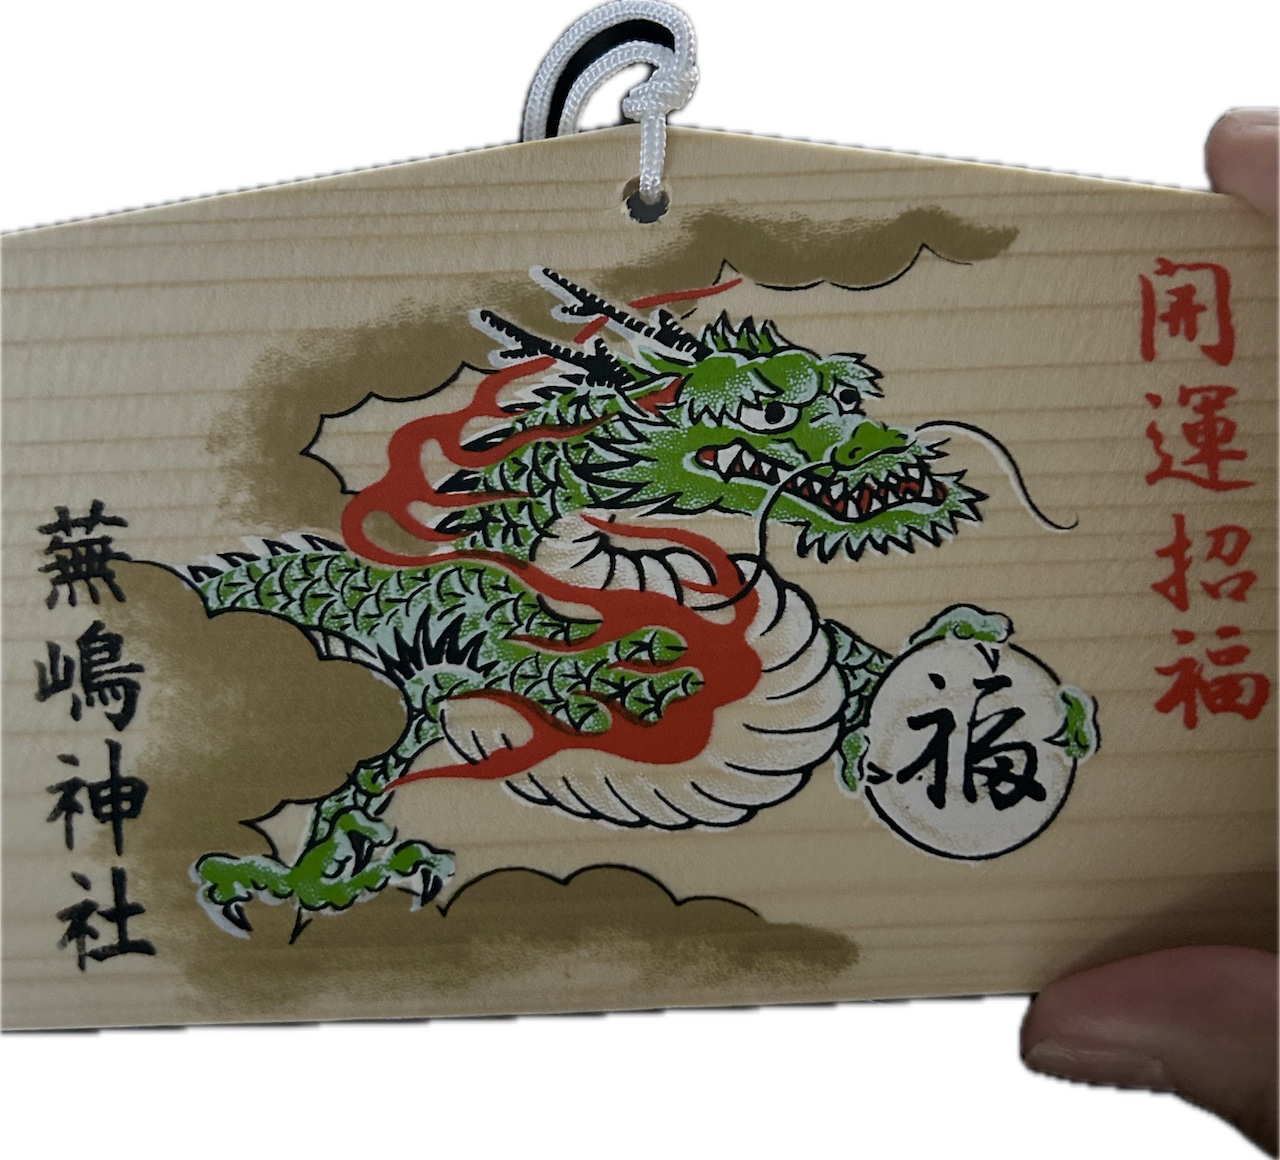 開運招福
福
蕪嶋神社